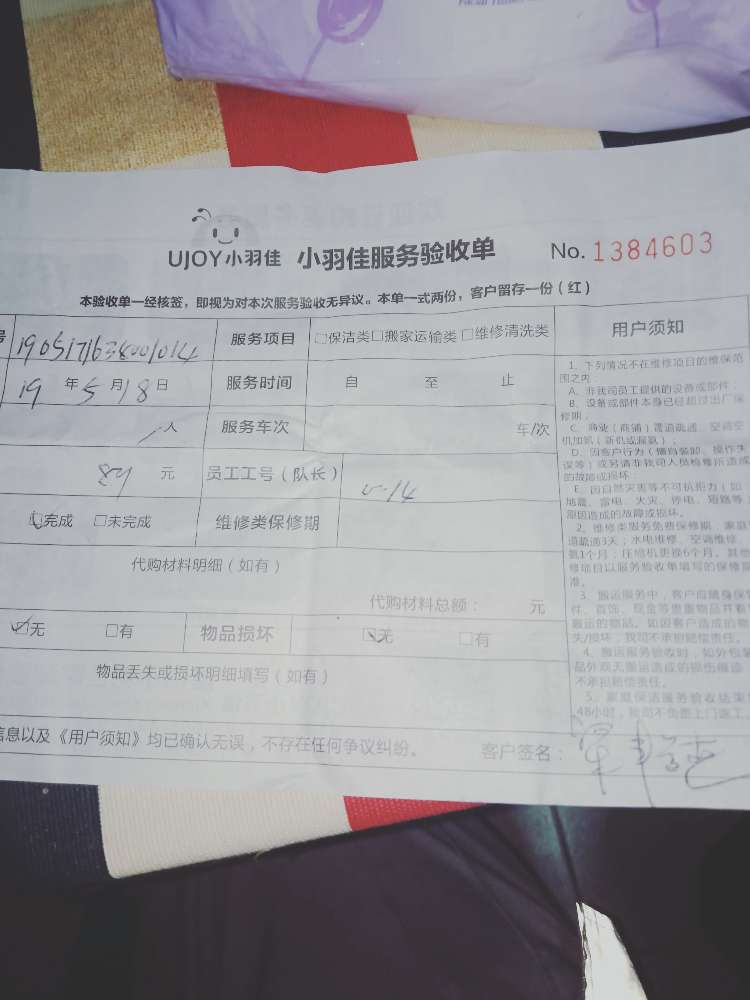 UJOY小羽佳 小羽佳服务验收单 No. 1384603
本验收单一经核签，即视为对本次服务验收无异议。本单一式两份，客户留存一份（红）
号 服务项目 □保洁类□搬家运输类□维修清洗类 用户须知
19年5月18日 服务时间 自 至 止
人 服务车次 车/次
元 员工工号（队长）
完成 □未完成 维修类保修期
代购材料明细（如有）
代购材料总额： 元
无 □有 物品损坏 无 □有
物品丢失或损坏明细填写（如有）
信息以及《用户须知》均已确认无误，不存在任何争议纠纷。 客户签名：
1、下列情况不在维修项目的维保范
围之内：
A、非我司员工提供的设备或部件；
B、设备或部件本身已经超过出厂保
修期；
C、商业（商铺）管道疏通、空调空
机加氟（新机或漏氟）；
D、因客户行为（擅自装卸、操作失
误等）或另请非我司人员检修所造成
的故障或损坏
E、因自然灾害等不可抗拒力（如
地震、雷电、火灾、停电、短路等）
原因造成的故障或损坏。
2、维修类服务免费保修期：家庭管
道疏通3天；水电维修、空调维修、
氨1个月；压缩机更换6个月。其他
修项目以服务验收单填写的保修期
准。
3、搬运服务中，客户应随身保
件、首饰、现金等贵重物品并看
搬运的物品。如因客户造成的物
失/损坏，我司不承担赔偿责任。
4、搬运服务验收时，如外包装
品外观无搬运造成的损伤痕迹
不承担赔偿责任。
5、家庭保洁服务验收结束
48小时，我司不负责上门返工